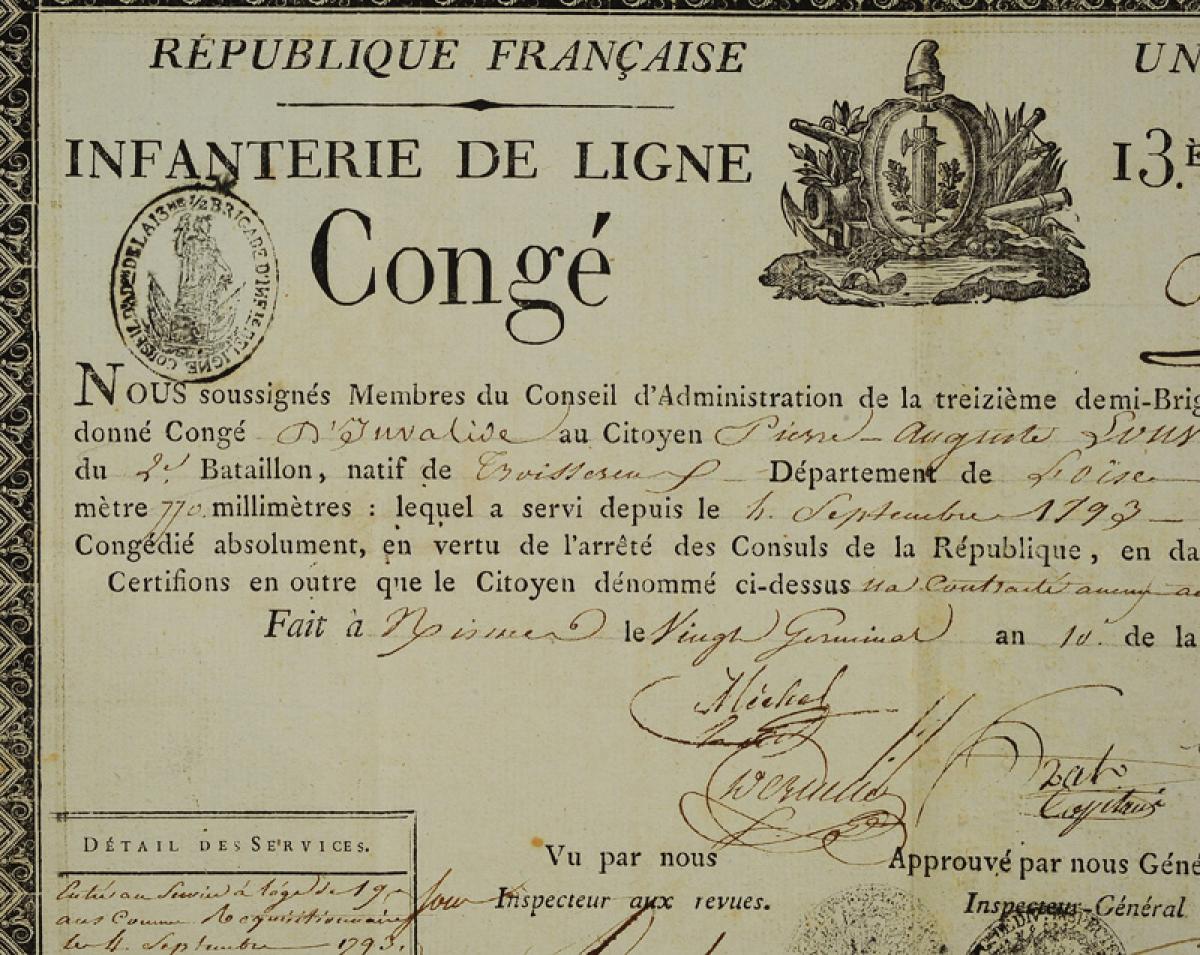 RÉPUBLIQUE FRANÇAISE
UN
INFANTERIE DE LIGNE
13.È
CONSEIL D'AD.ON DE LA 13ME 1/2 BRIGADE D'INF.IE DE LIGNE
Congé
NOUS soussignés Membres du Conseil d'Administration de la treizième demi-Brig
donné Congé D'Invalide au Citoyen Pierre Auguste
du 2.d Bataillon, natif de Troissereux Département de L'oise
mètre 770. millimètres : lequel a servi depuis le 4. Septembre 1793
Congédié absolument, en vertu de l'arrêté des Consuls de la République, en da
Certifions en outre que le Citoyen dénommé ci-dessus na Contracté aucun
Fait à Nismes le Vingt Germinal an 10. de la
Méchel
Capitaine
DÉTAIL DES SERVICES.
Vu par nous
Approuvé par nous Géné
Entré au Service à l'âge de 19
ans Comme Requisitionnaire
Inspecteur aux revues.
Inspecteur-Général
le 4. Septembre 1793.